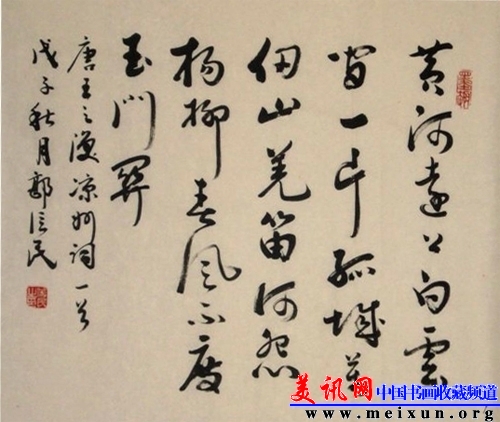 黄河远上白云
间一片孤城万
仞山羌笛何怨
杨柳春风不度
玉门关
唐王之涣凉州词一首
戊子秋月郭信民
美讯网 中国书画收藏频道
www.meixun.org